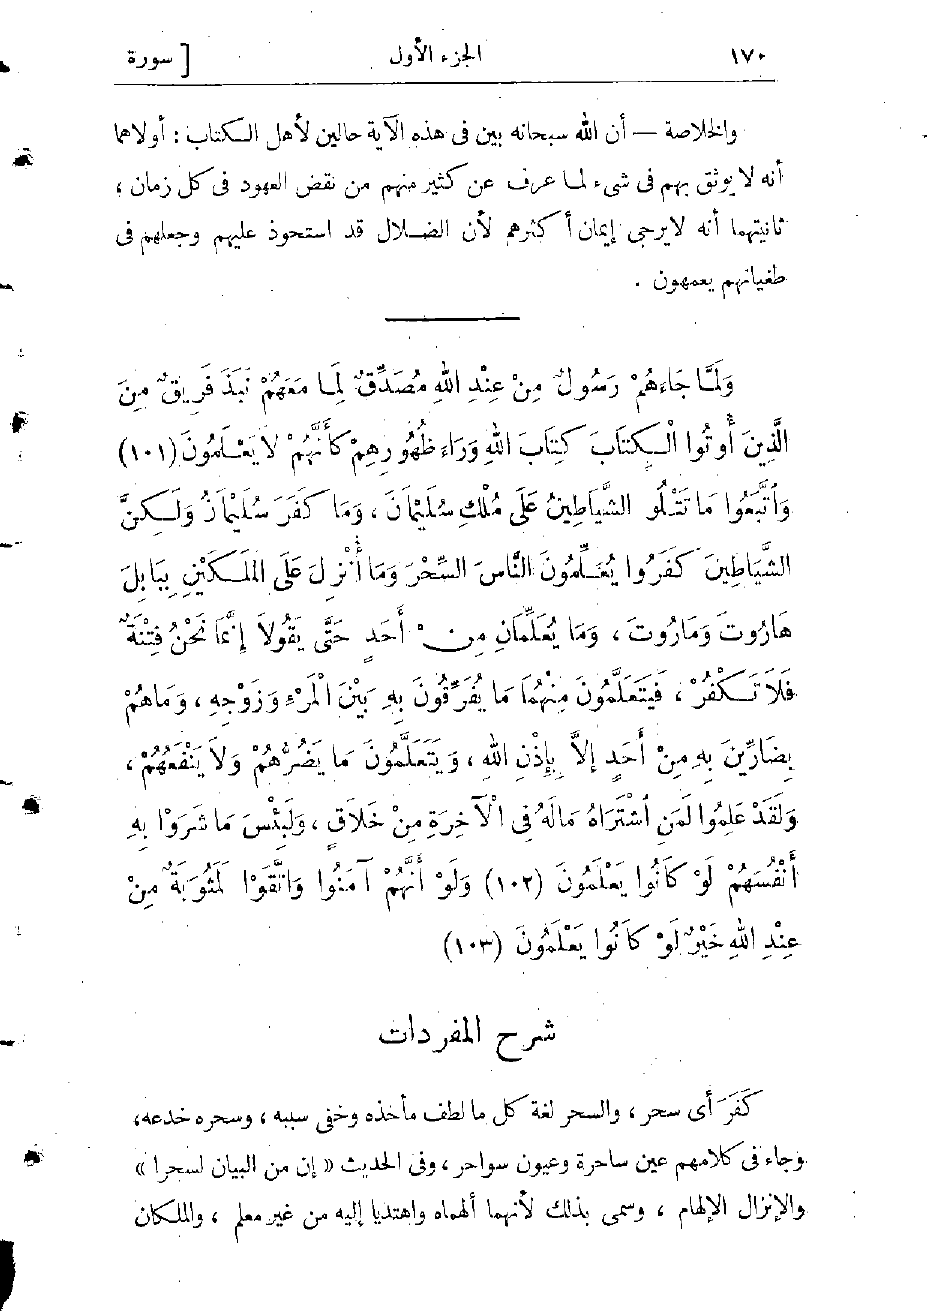 ١٧٠ الجزء الأول [ سورة
والخلاصة — أن الله سبحانه بين فى هذه الآية حالين لأهل الكتاب : أولاهما
أنه لا يوثق بهم فى شىء لما عرف عن كثير منهم من نقض العهود فى كل زمان ،
ثانيتهما أنه لايرجى إيمان أكثرهم لأن الضلال قد استحوذ عليهم وجعلهم فى
طغيانهم يعمهون .
وَلَمَّا جَاءَهُمْ رَسُولٌ مِنْ عِنْدِ اللهِ مُصَدِّقٌ لِمَا مَعَهُمْ نَبَذَ فَرِيقٌ مِنَ
الَّذِينَ أُوتُوا الْكِتَابَ كِتَابَ اللهِ وَرَاءَ ظُهُورِهِمْ كَأَنَّهُمْ لاَ يَعْلَمُونَ (١٠١)
وَاتَّبَعُوا مَا تَتْلُو الشَّيَاطِينُ عَلَى مُلْكِ سُلَيْمَانَ ، وَمَا كَفَرَ سُلَيْمَانُ وَلَكِنَّ
الشَّيَاطِينَ كَفَرُوا يُعَلِّمُونَ النَّاسَ السِّحْرَ وَمَا أُنْزِلَ عَلَى الْمَلَكَيْنِ بِبَابِلَ
هَارُوتَ وَمَارُوتَ ، وَمَا يُعَلِّمَانِ مِنْ أَحَدٍ حَتَّى يَقُولاَ إِنَّمَا نَحْنُ فِتْنَةٌ
فَلاَ تَكْفُرْ ، فَيَتَعَلَّمُونَ مِنْهُمَا مَا يُفَرِّقُونَ بِهِ بَيْنَ الْمَرْءِ وَزَوْجِهِ ، وَمَاهُمْ
بِضَارِّينَ بِهِ مِنْ أَحَدٍ إِلاَّ بِإِذْنِ اللهِ ، وَيَتَعَلَّمُونَ مَا يَضُرُّهُمْ وَلاَ يَنْفَعُهُمْ ،
وَلَقَدْ عَلِمُوا لَمَنِ اشْتَرَاهُ مَالَهُ فِى الْآخِرَةِ مِنْ خَلاَقٍ ، وَلَبِئْسَ مَا شَرَوْا بِهِ
أَنْفُسَهُمْ لَوْ كَانُوا يَعْلَمُونَ (١٠٢) وَلَوْ أَنَّهُمْ آمَنُوا وَاتَّقَوْا لَمَثُوبَةٌ مِنْ
عِنْدِ اللهِ خَيْرٌ لَوْ كَانُوا يَعْلَمُونَ (١٠٣)
شرح المفردات
كَفَرَ أى سحر ، والسحر لغة كل ما لطف مأخذه وخفى سببه ، وسحره خدعه،
وجاء فى كلامهم عين ساحرة وعيون سواحر ، وفى الحديث « إن من البيان لسحرا »
والإنزال الإلهام ، وسمى بذلك لأنهما ألهماه واهتديا إليه من غير معلم ، والملكان